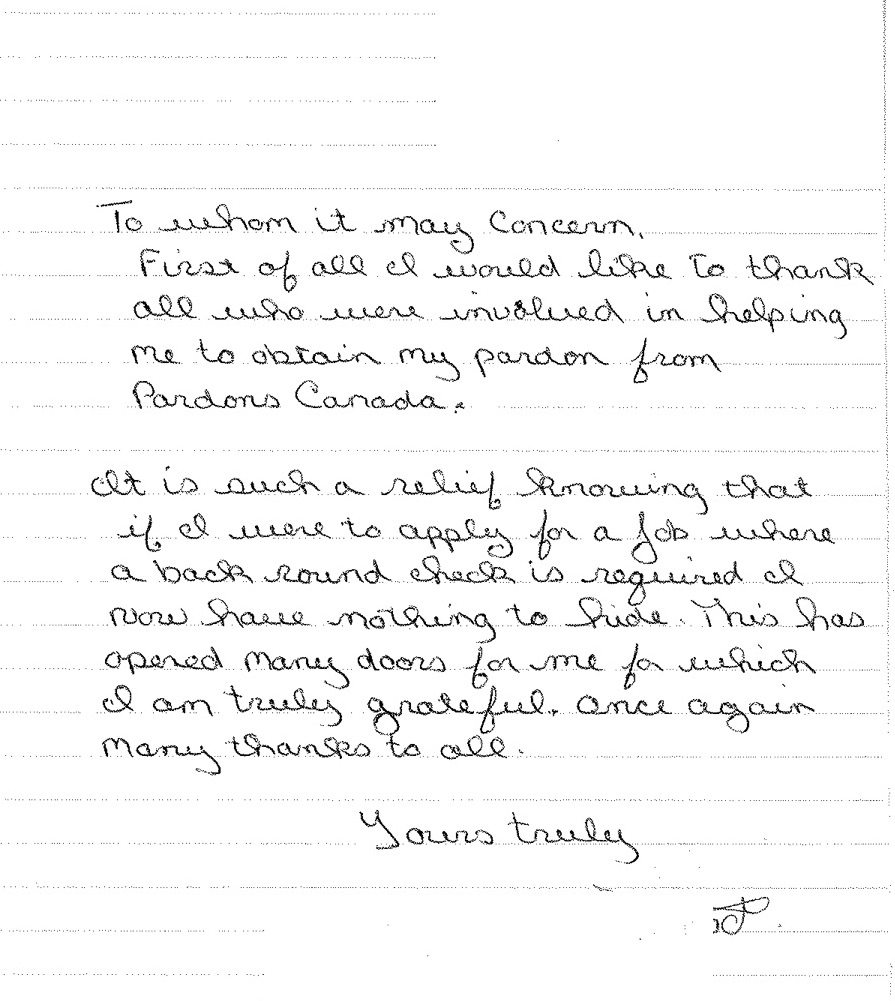 To whom it may Concern,
First of all I would like To thank
all who were involved in helping
me to obtain my pardon from
Pardons Canada.
It is such a relief knowing that
if I were to apply for a job where
a back round check is required I
now have nothing to hide. This has
opened many doors for me for which
I am truly grateful. Once again
many thanks to all.
Yours truly